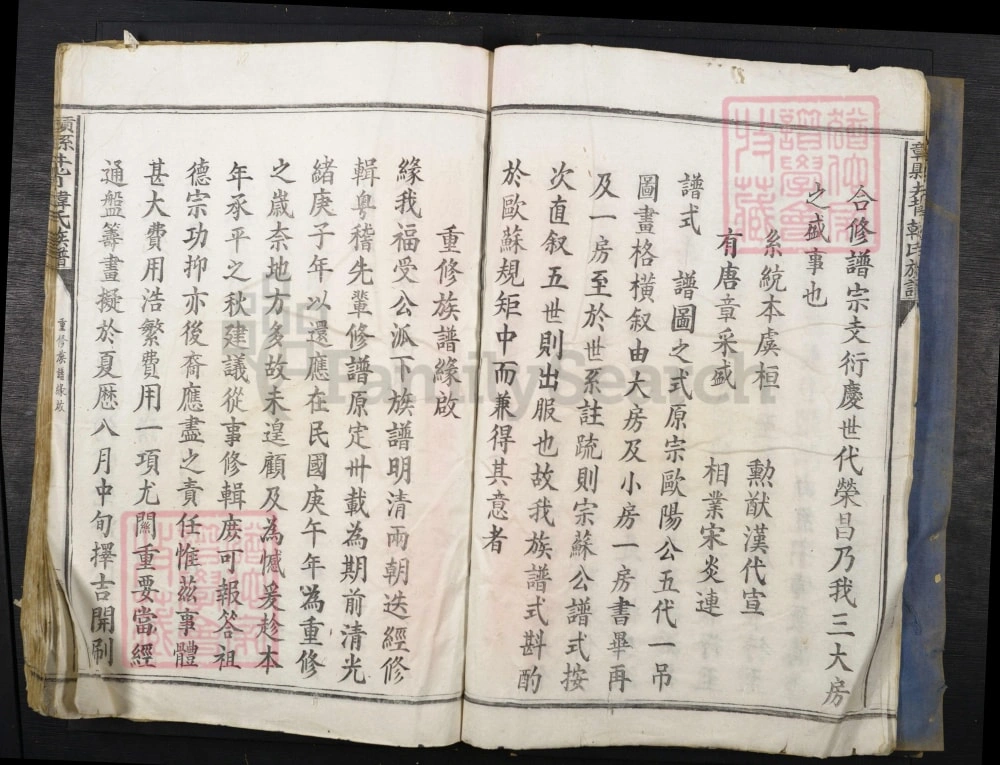 合修譜宗支衍慶世代榮昌乃我三大房
之盛事也
系統本虞桓　勳猷漢代宣
有唐章采盛　相業宋炎連
譜式　譜圖之式原宗歐陽公五代一吊
圖畫格橫叙由大房及小房一房書畢再
及一房至於世系註疏則宗蘇公譜式按
次直叙五世則出服也故我族譜式斟酌
於歐蘇規矩中而兼得其意者
重修族譜緣啟
緣我福受公派下族譜明清兩朝迭經修
輯粤稽先輩修譜原定卅載為期前清光
緒庚子年以還應在民國庚午年為重修
之歲奈地方多故未遑顧及為憾爰趁本
年承平之秋建議從事修輯庶可報答祖
德宗功抑亦後裔應盡之責任惟茲事體
甚大費用浩繁費用一項尤關重要當經
通盤籌畫擬於夏歷八月中旬擇吉開刷
重修族譜緣啟
韓氏族譜
FamilySearch